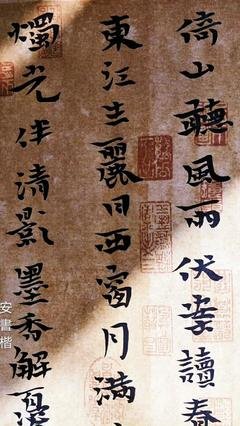 倚山聽風雨伏案讀春
東江生麗日西窗月滿
燭光伴清影墨香解
安書楷